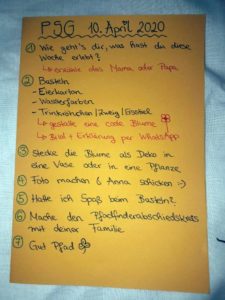 PSG 10. April 2020
① Wie geht's dir, was hast du diese
Woche erlebt?
↳ erzähle das Mama oder Papa
② Basteln
- Eierkarton
- Wasserfarben
- Trinkröhrchen / Zweig / Essstiel
↳ gestalte eine coole Blume
↳ Bild + Erklärung per WhatsApp
③ Stecke die Blume als Deko in
eine Vase oder in eine Pflanze
④ Foto machen & Anna schicken :-)
⑤ Hatte ich Spaß beim Basteln?
⑥ Mache den Pfadfinderabschiedskreis
mit deiner Familie
⑦ Gut Pfad